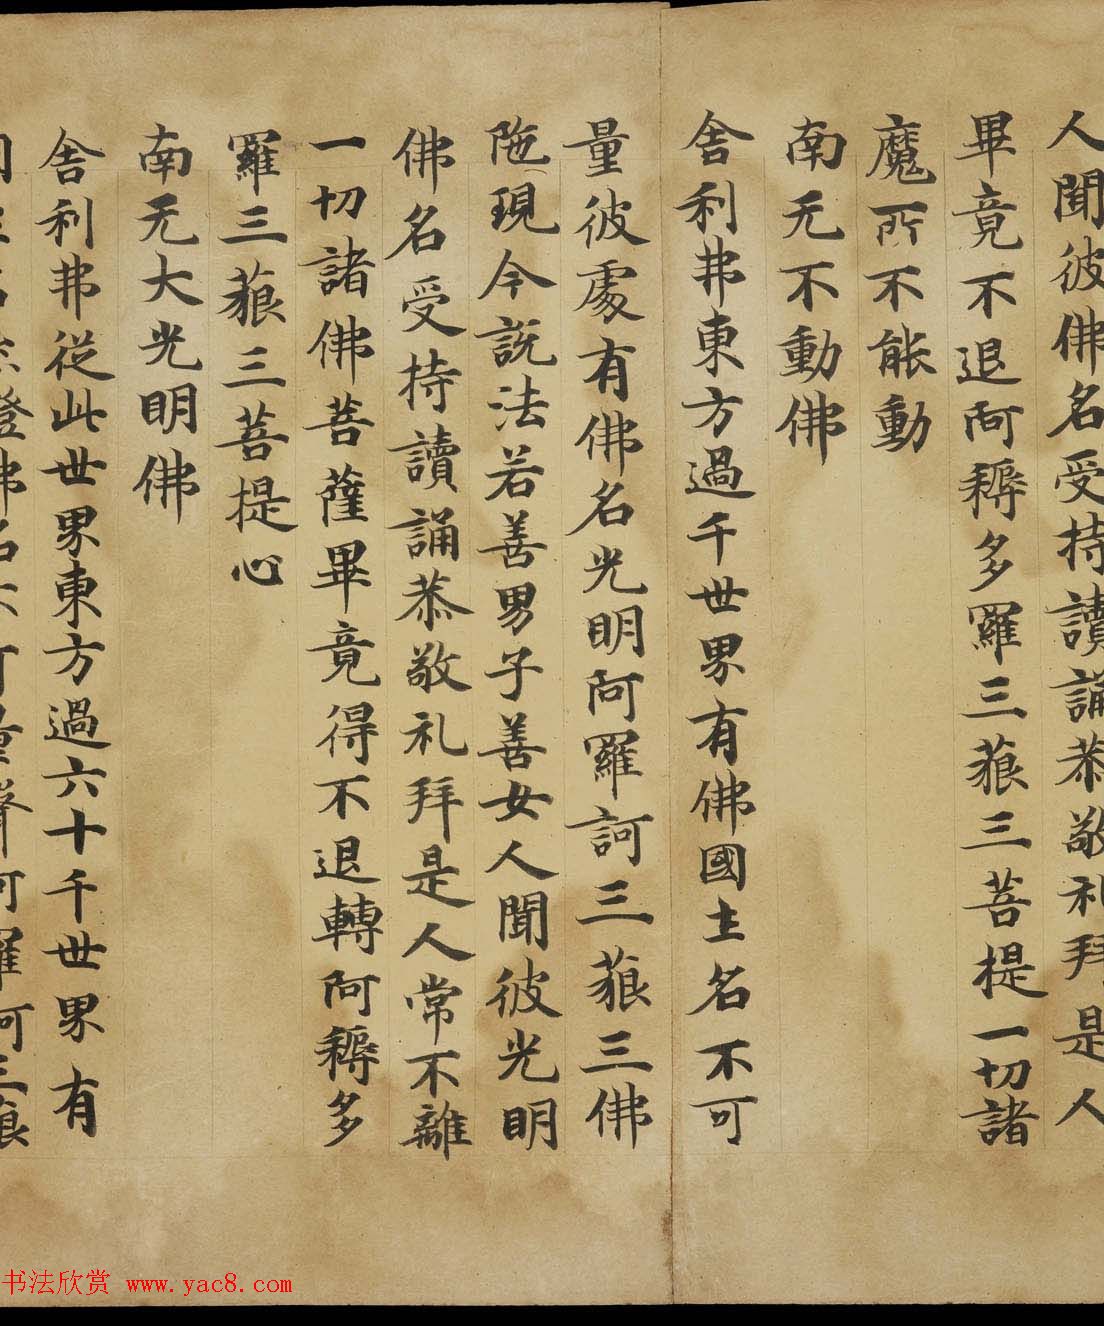 人聞彼佛名受持讀誦恭敬礼拜是人
畢竟不退阿耨多羅三藐三菩提一切諸
魔所不能動
南无不動佛
舍利弗東方過千世界有佛國土名不可
量彼處有佛名光明阿羅訶三藐三佛
陁現今說法若善男子善女人聞彼光明
佛名受持讀誦恭敬礼拜是人常不離
一切諸佛菩薩畢竟得不退轉阿耨多
羅三藐三菩提心
南无大光明佛
舍利弗從此世界東方過六十千世界有
燈佛名不可量聲阿羅訶三藐
书法欣赏 www.yac8.com